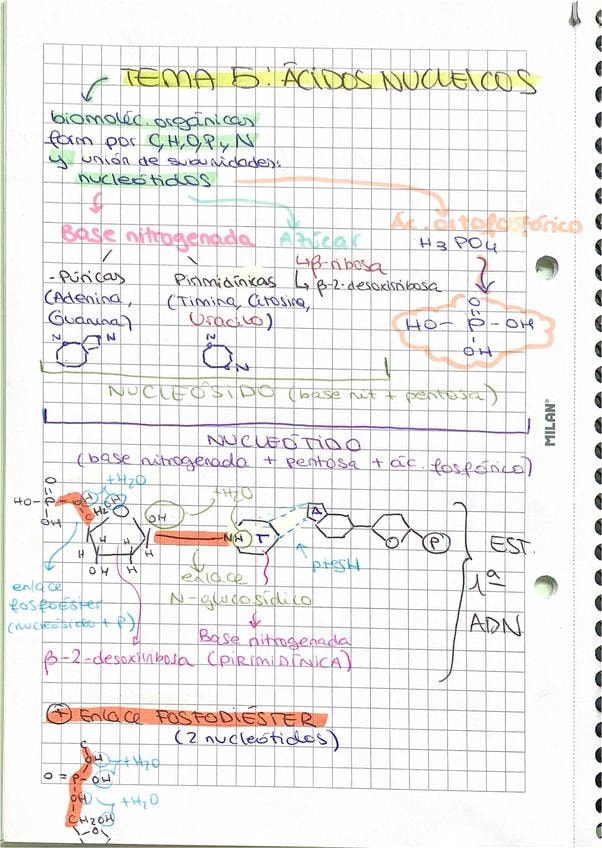 TEMA 5: ÁCIDOS NUCLEICOS
biomoléc. orgánicas
form por C,H,O,P y N
y unión de subunidades:
nucleótidos
Base nitrogenada Azúcar Ác. ortofosfórico
H3PO4
↳β-ribosa
↳ β-2-desoxirribosa
-Púricas
(Adenina,
Guanina)
Pirimidínicas
(Timina, Citosina,
Uracilo)
O
HO- P - OH
OH
N N
N N
NUCLEÓSIDO (base nit + pentosa)
MILAN
NUCLEÓTIDO
(base nitrogenada + pentosa + ác. fosfórico)
+H2O +H2O
O
HO-P-OH
OH
CH2OH
O
OH
H H
H H
OH H
NH T
A
O P
presH
EST.
1ª
ADN
enlace
fosfoéster
(nucleósido + P)
enlace
N-glucosídico
Base nitrogenada
(PIRIMIDÍNICA)
β-2-desoxirribosa
+ Enlace FOSFODIÉSTER
(2 nucleótidos)
C
OH +H2O
O=P-OH
OH +H2O
CH2OH
O